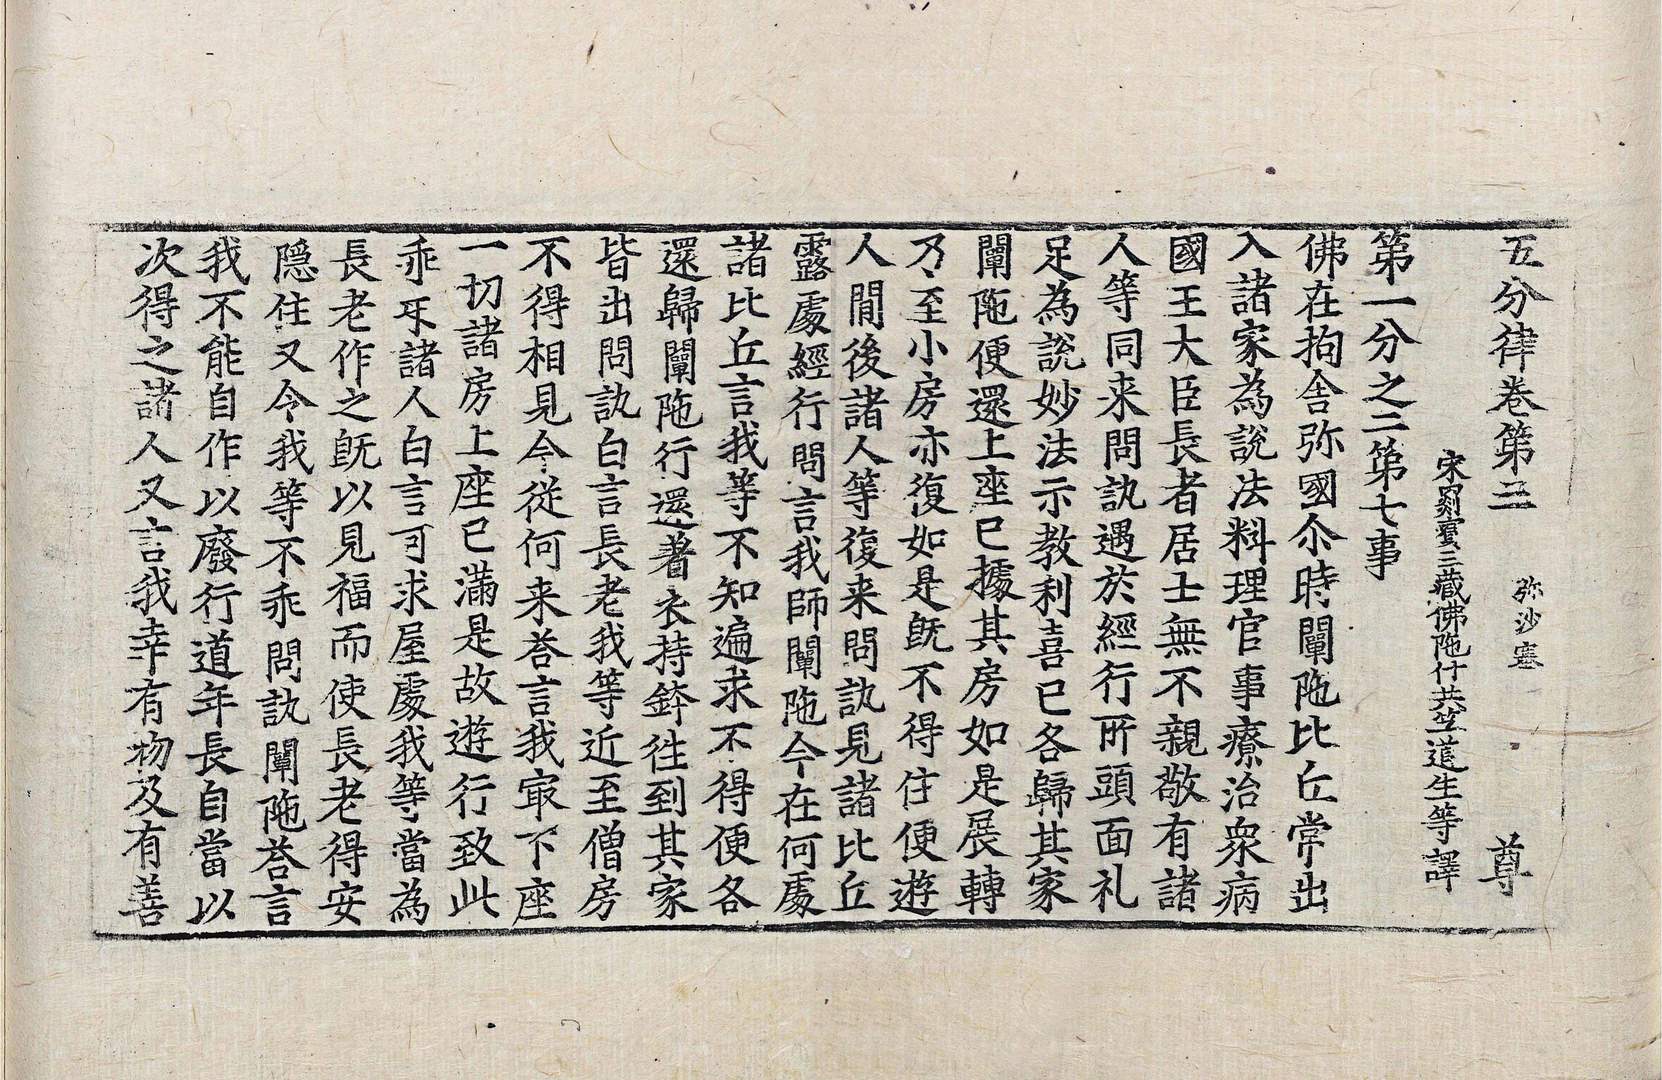 五分律卷第三 弥沙塞 尊
宋罽賓三藏佛陁什共竺道生等譯
第一分之二第七事
佛在拘舍弥國尒時闡陁比丘常出
入諸家為說法料理官事療治衆病
國王大臣長者居士無不親敬有諸
人等同来問訊遇於經行所頭面礼
足為說妙法示教利喜已各歸其家
闡陁便還上座已據其房如是展轉
乃至小房亦復如是既不得住便遊
人間後諸人等復来問訊見諸比丘
露處經行問言我師闡陁今在何處
諸比丘言我等不知遍求不得便各
還歸闡陁行還著衣持鉢徃到其家
皆出問訊白言長老我等近至僧房
不得相見今從何来荅言我㝡下座
一切諸房上座已滿是故遊行致此
乖㸦諸人白言可求屋處我等當為
長老作之既以見福而使長老得安
隱住又令我等不乖問訊闡陁荅言
我不能自作以廢行道年長自當以
次得之諸人又言我幸有物及有善